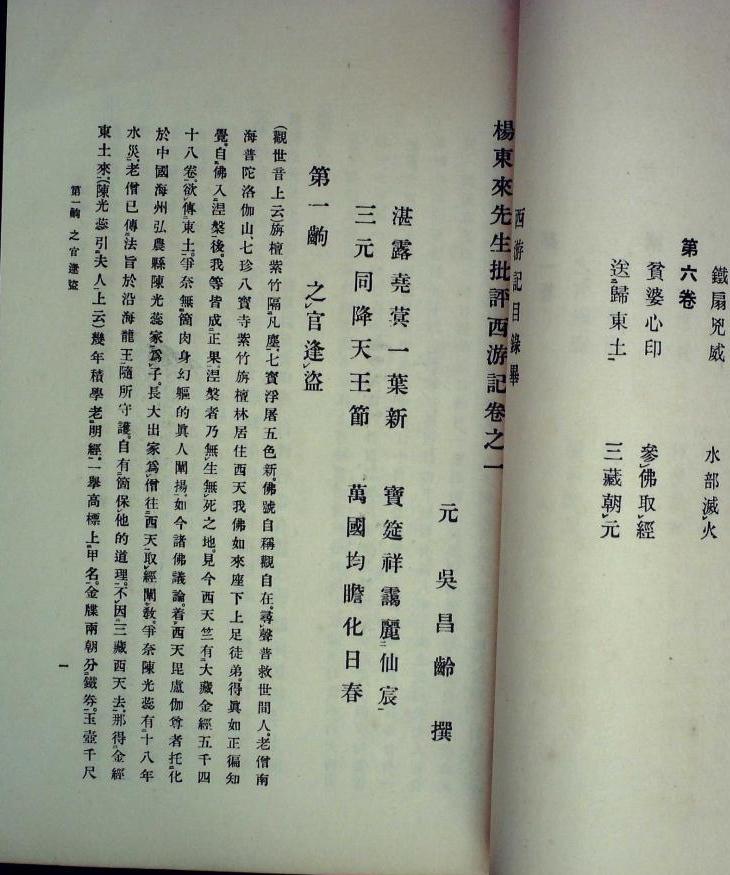 鐵扇兇威　水部滅火
第六卷
貧婆心印　參佛取經
送歸東土　三藏朝元
西游記目錄畢
楊東來先生批評西游記卷之一
元　吳昌齡　撰
湛露堯蓂一葉新　寶筵祥靄麗仙宸
三元同降天王節　萬國均瞻化日春
第一齣　之官逢盜
(觀世音上云)旃檀紫竹隔凡塵。七寶浮屠五色新。佛號自稱觀自在。尋聲普救世間人。老僧南
海普陀洛伽山七珍八寶寺紫竹旃檀林居住西天我佛如來座下上足徒弟。得眞如正徧知
覺。自佛入涅槃後。我等皆成正果。涅槃者乃無生無死之地。見今西天竺有大藏金經五千四
十八卷。欲傳東土。爭奈無箇肉身幻軀的眞人闡揚。如今諸佛議論。着西天毘盧伽尊者托化
於中國海州弘農縣陳光蕊家爲子。長大出家爲僧。往西天取經闡教。爭奈陳光蕊有十八年
水災。老僧已傳法旨於沿海龍王。隨所守護。自有箇保他的道理。不因三藏西天去。那得金經
東土來。(陳光蕊引夫人上云)幾年積學老明經。一舉高標上甲名。金牒兩朝分鐵券。玉壺千尺
第一齣　之官逢盜
一